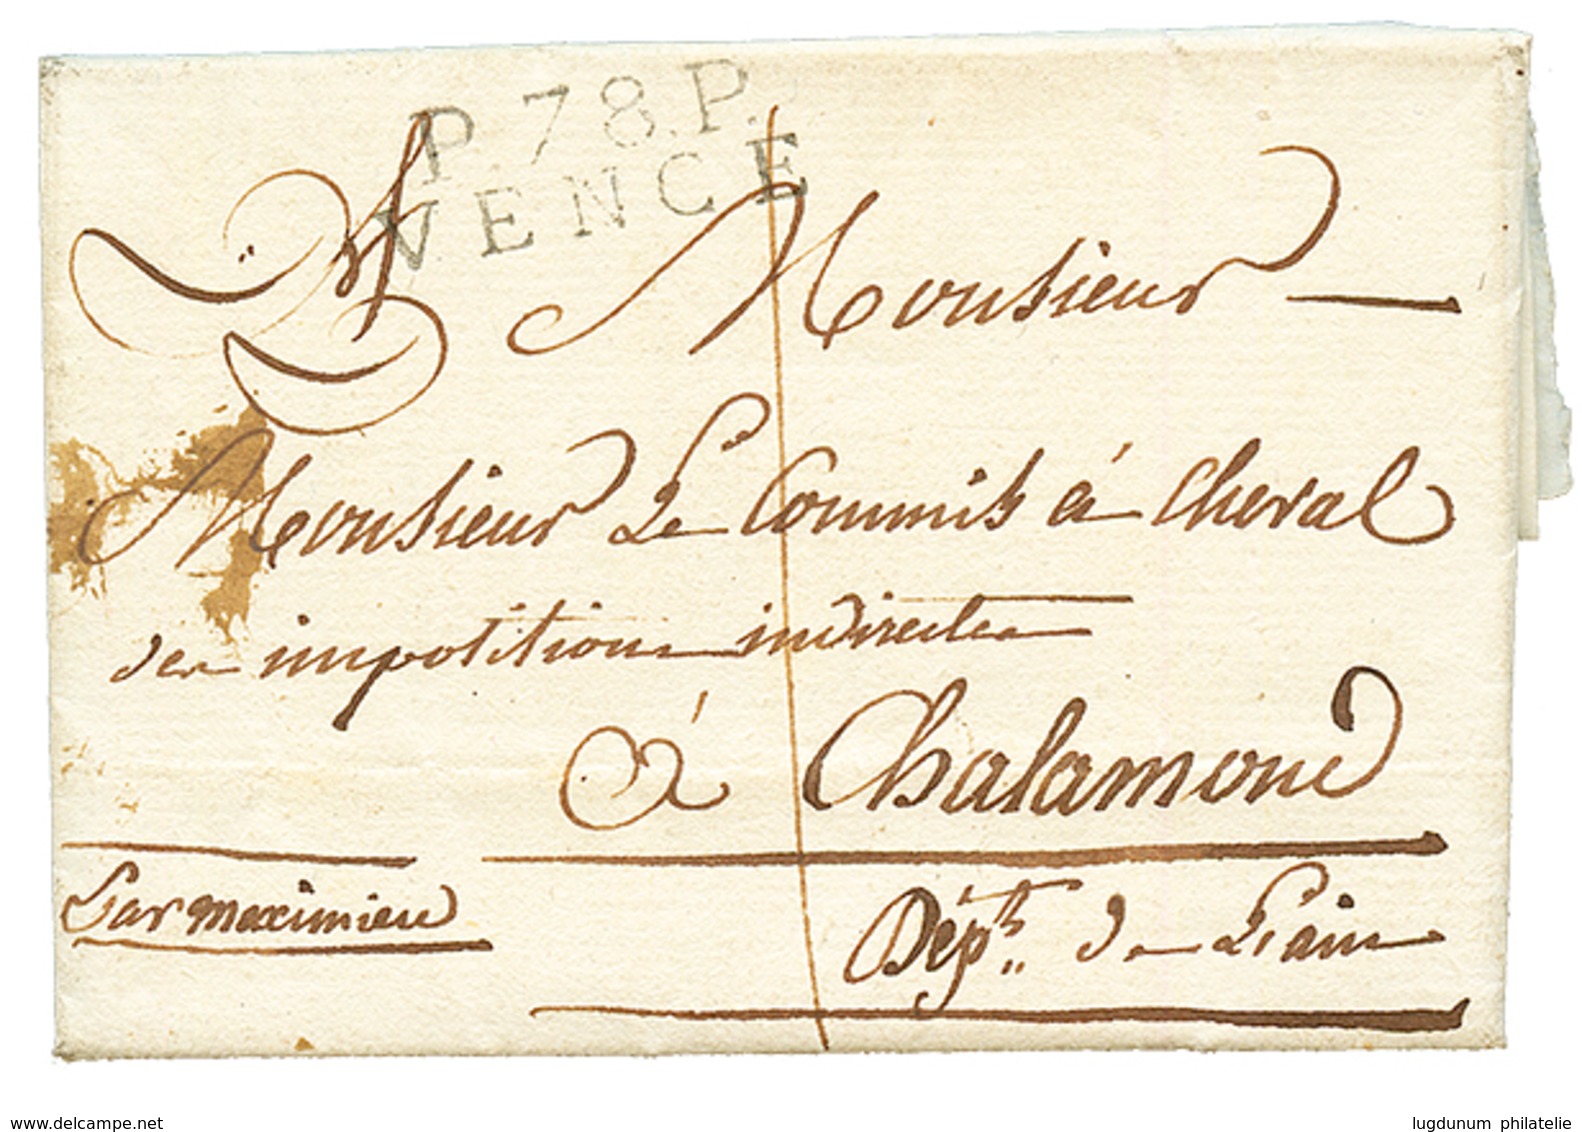 P. 78. P.
VENCE
Monsieur
Monsieur Le Commis à Cheval
des impositions indirectes
à Chalamond
Dépt. de L'ain
Par maximieu
www.delcampe.net
lugdunum philatelie